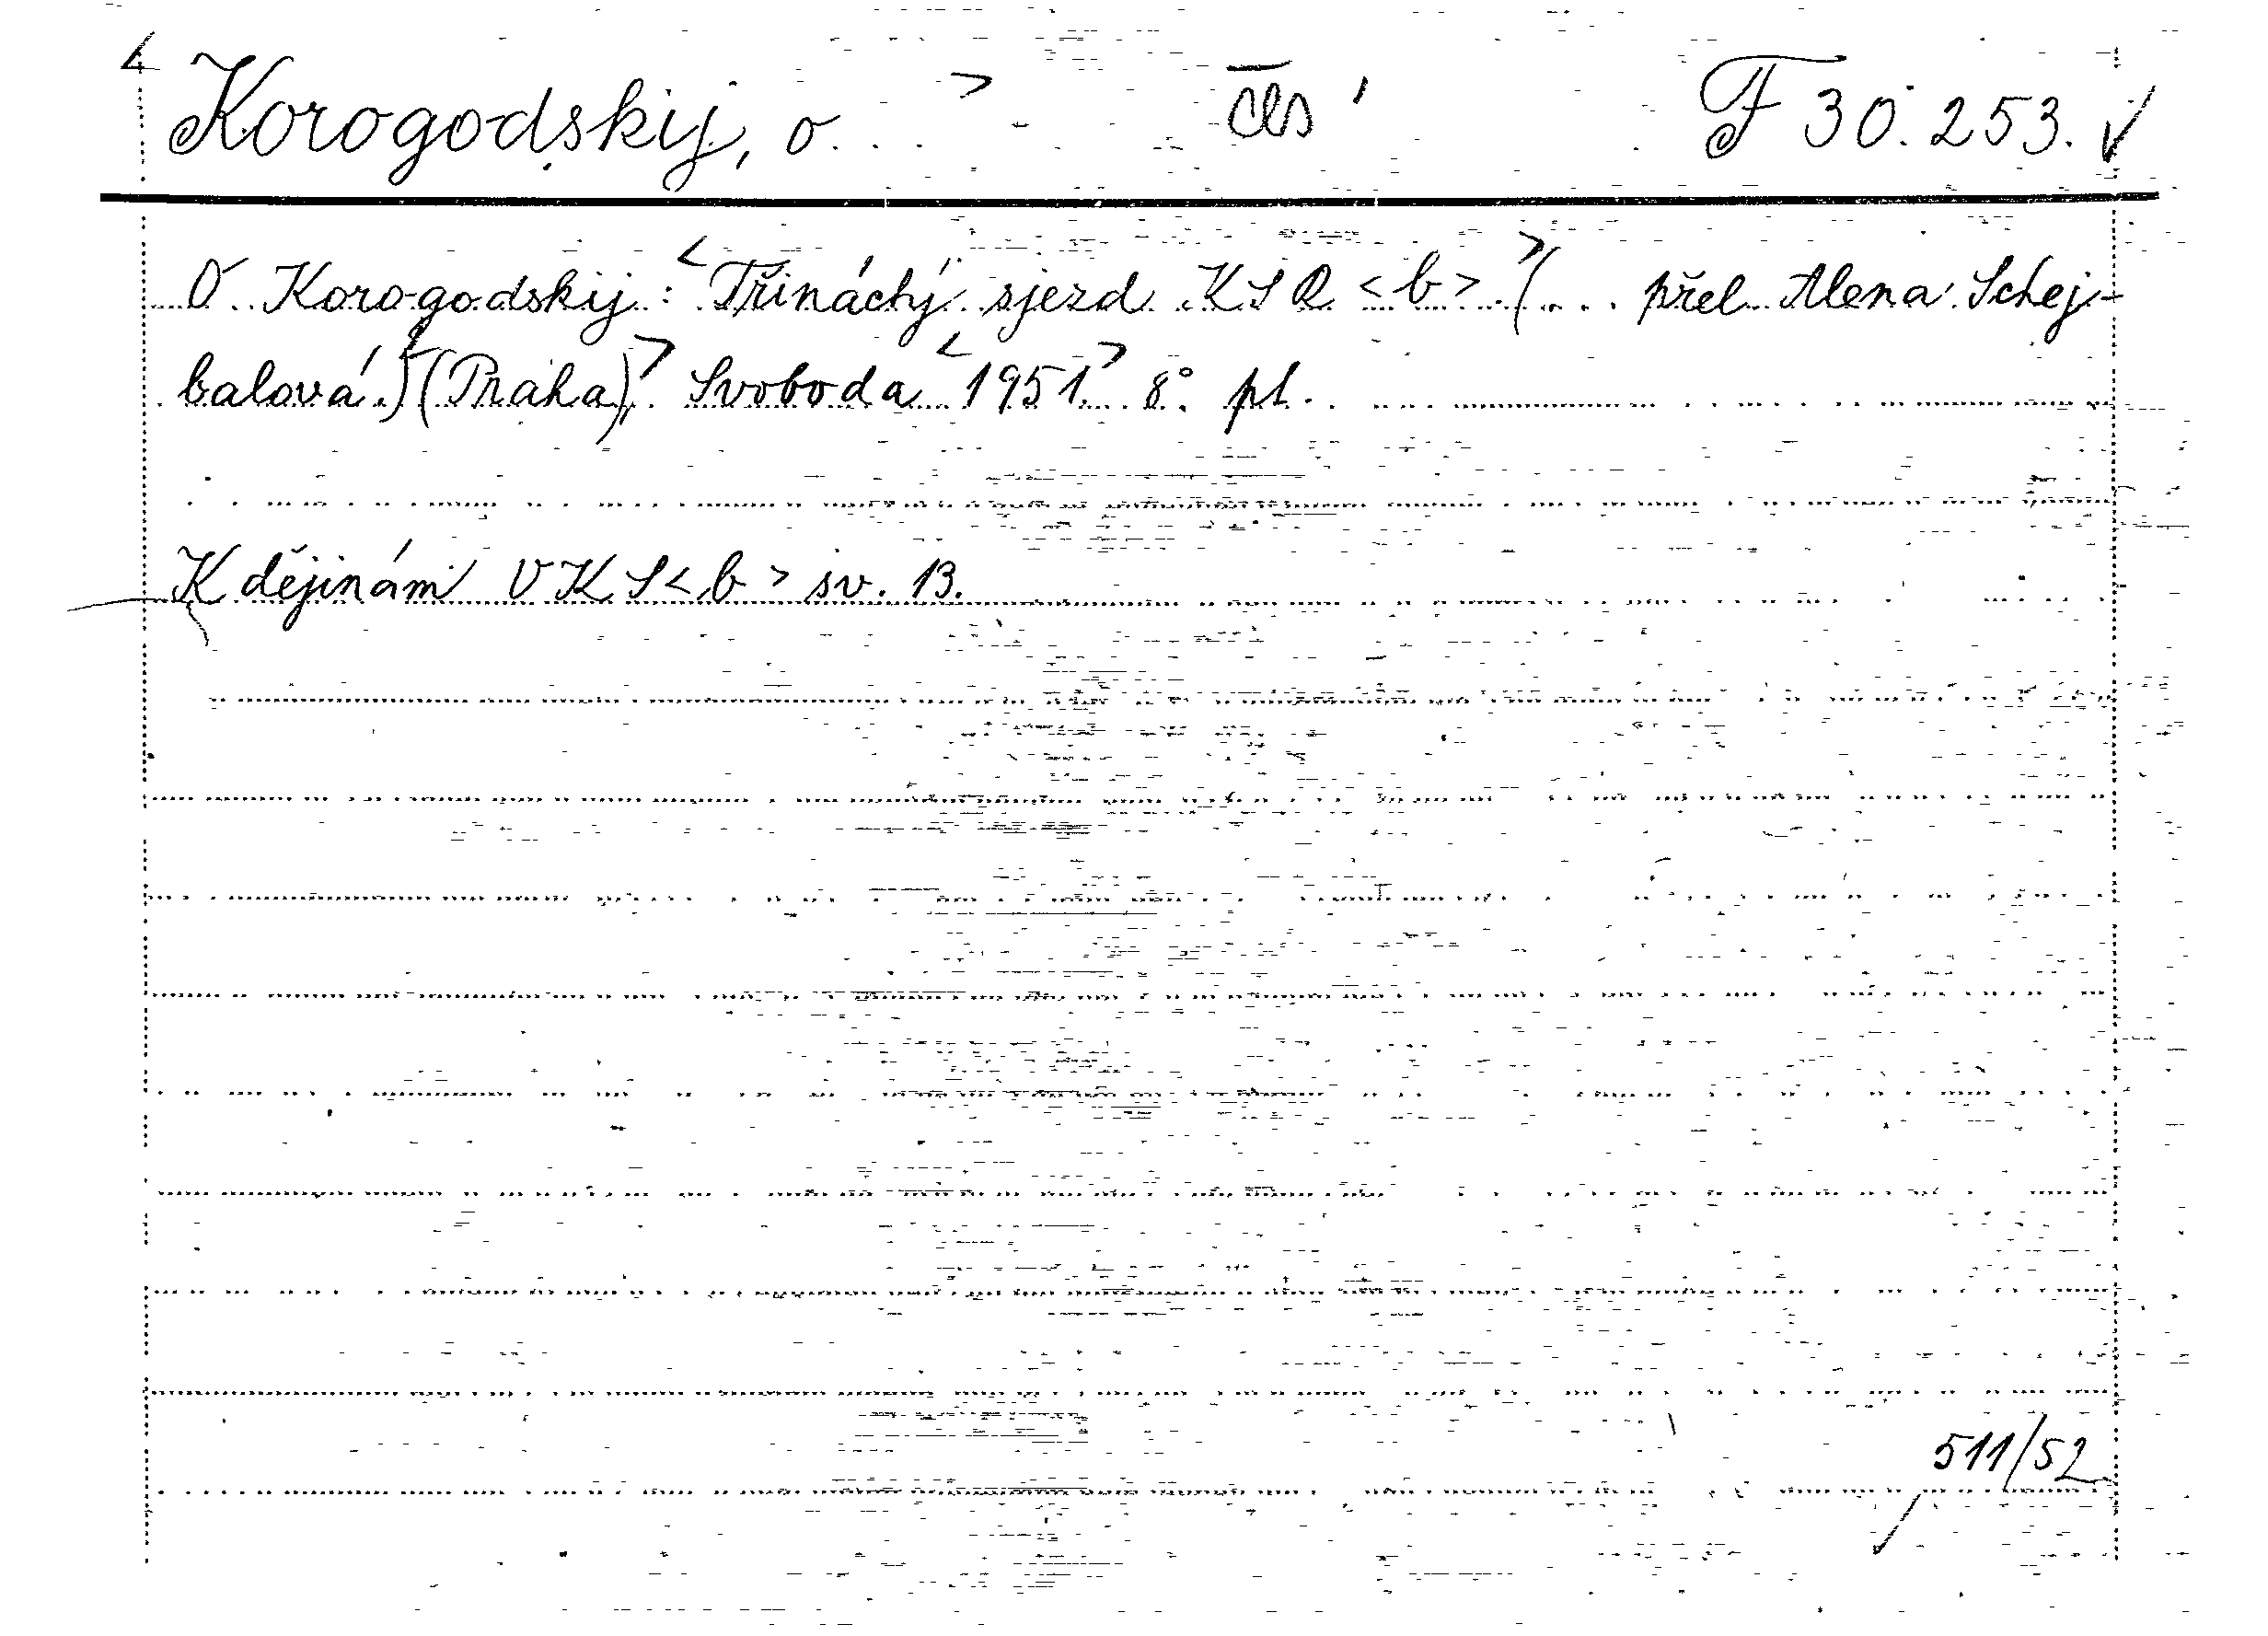 Korogodskij, O. čes F 30.253.
O. Korogodskij: Třináctý sjezd KSR <b> (... přel. Alena Schej-
balová.) (Praha), Svoboda 1951. 8° pl.
K dějinám VKS<b> sv. 13.
511/52